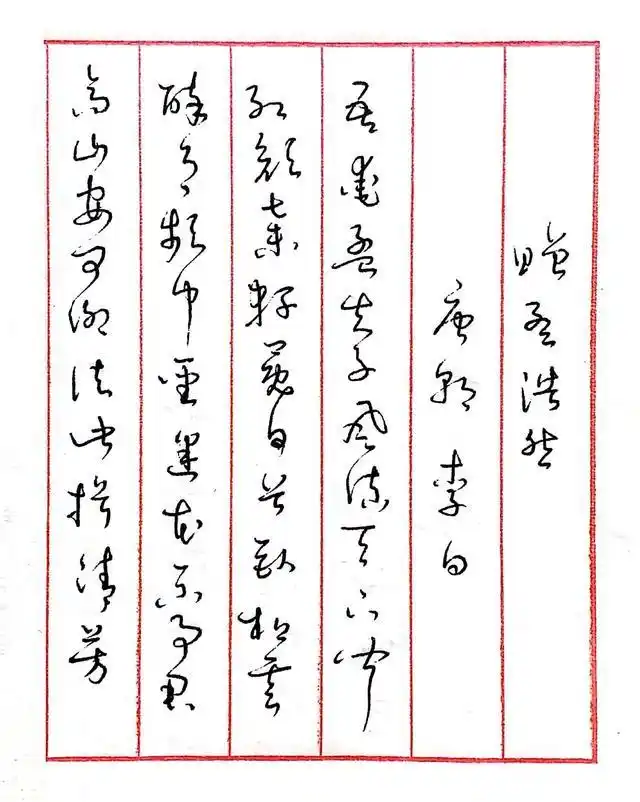 赠孟浩然
唐朝 李白
吾爱孟夫子风流天下闻
红颜弃轩冕白首卧松云
醉月频中圣迷花不事君
高山安可仰徒此揖清芬